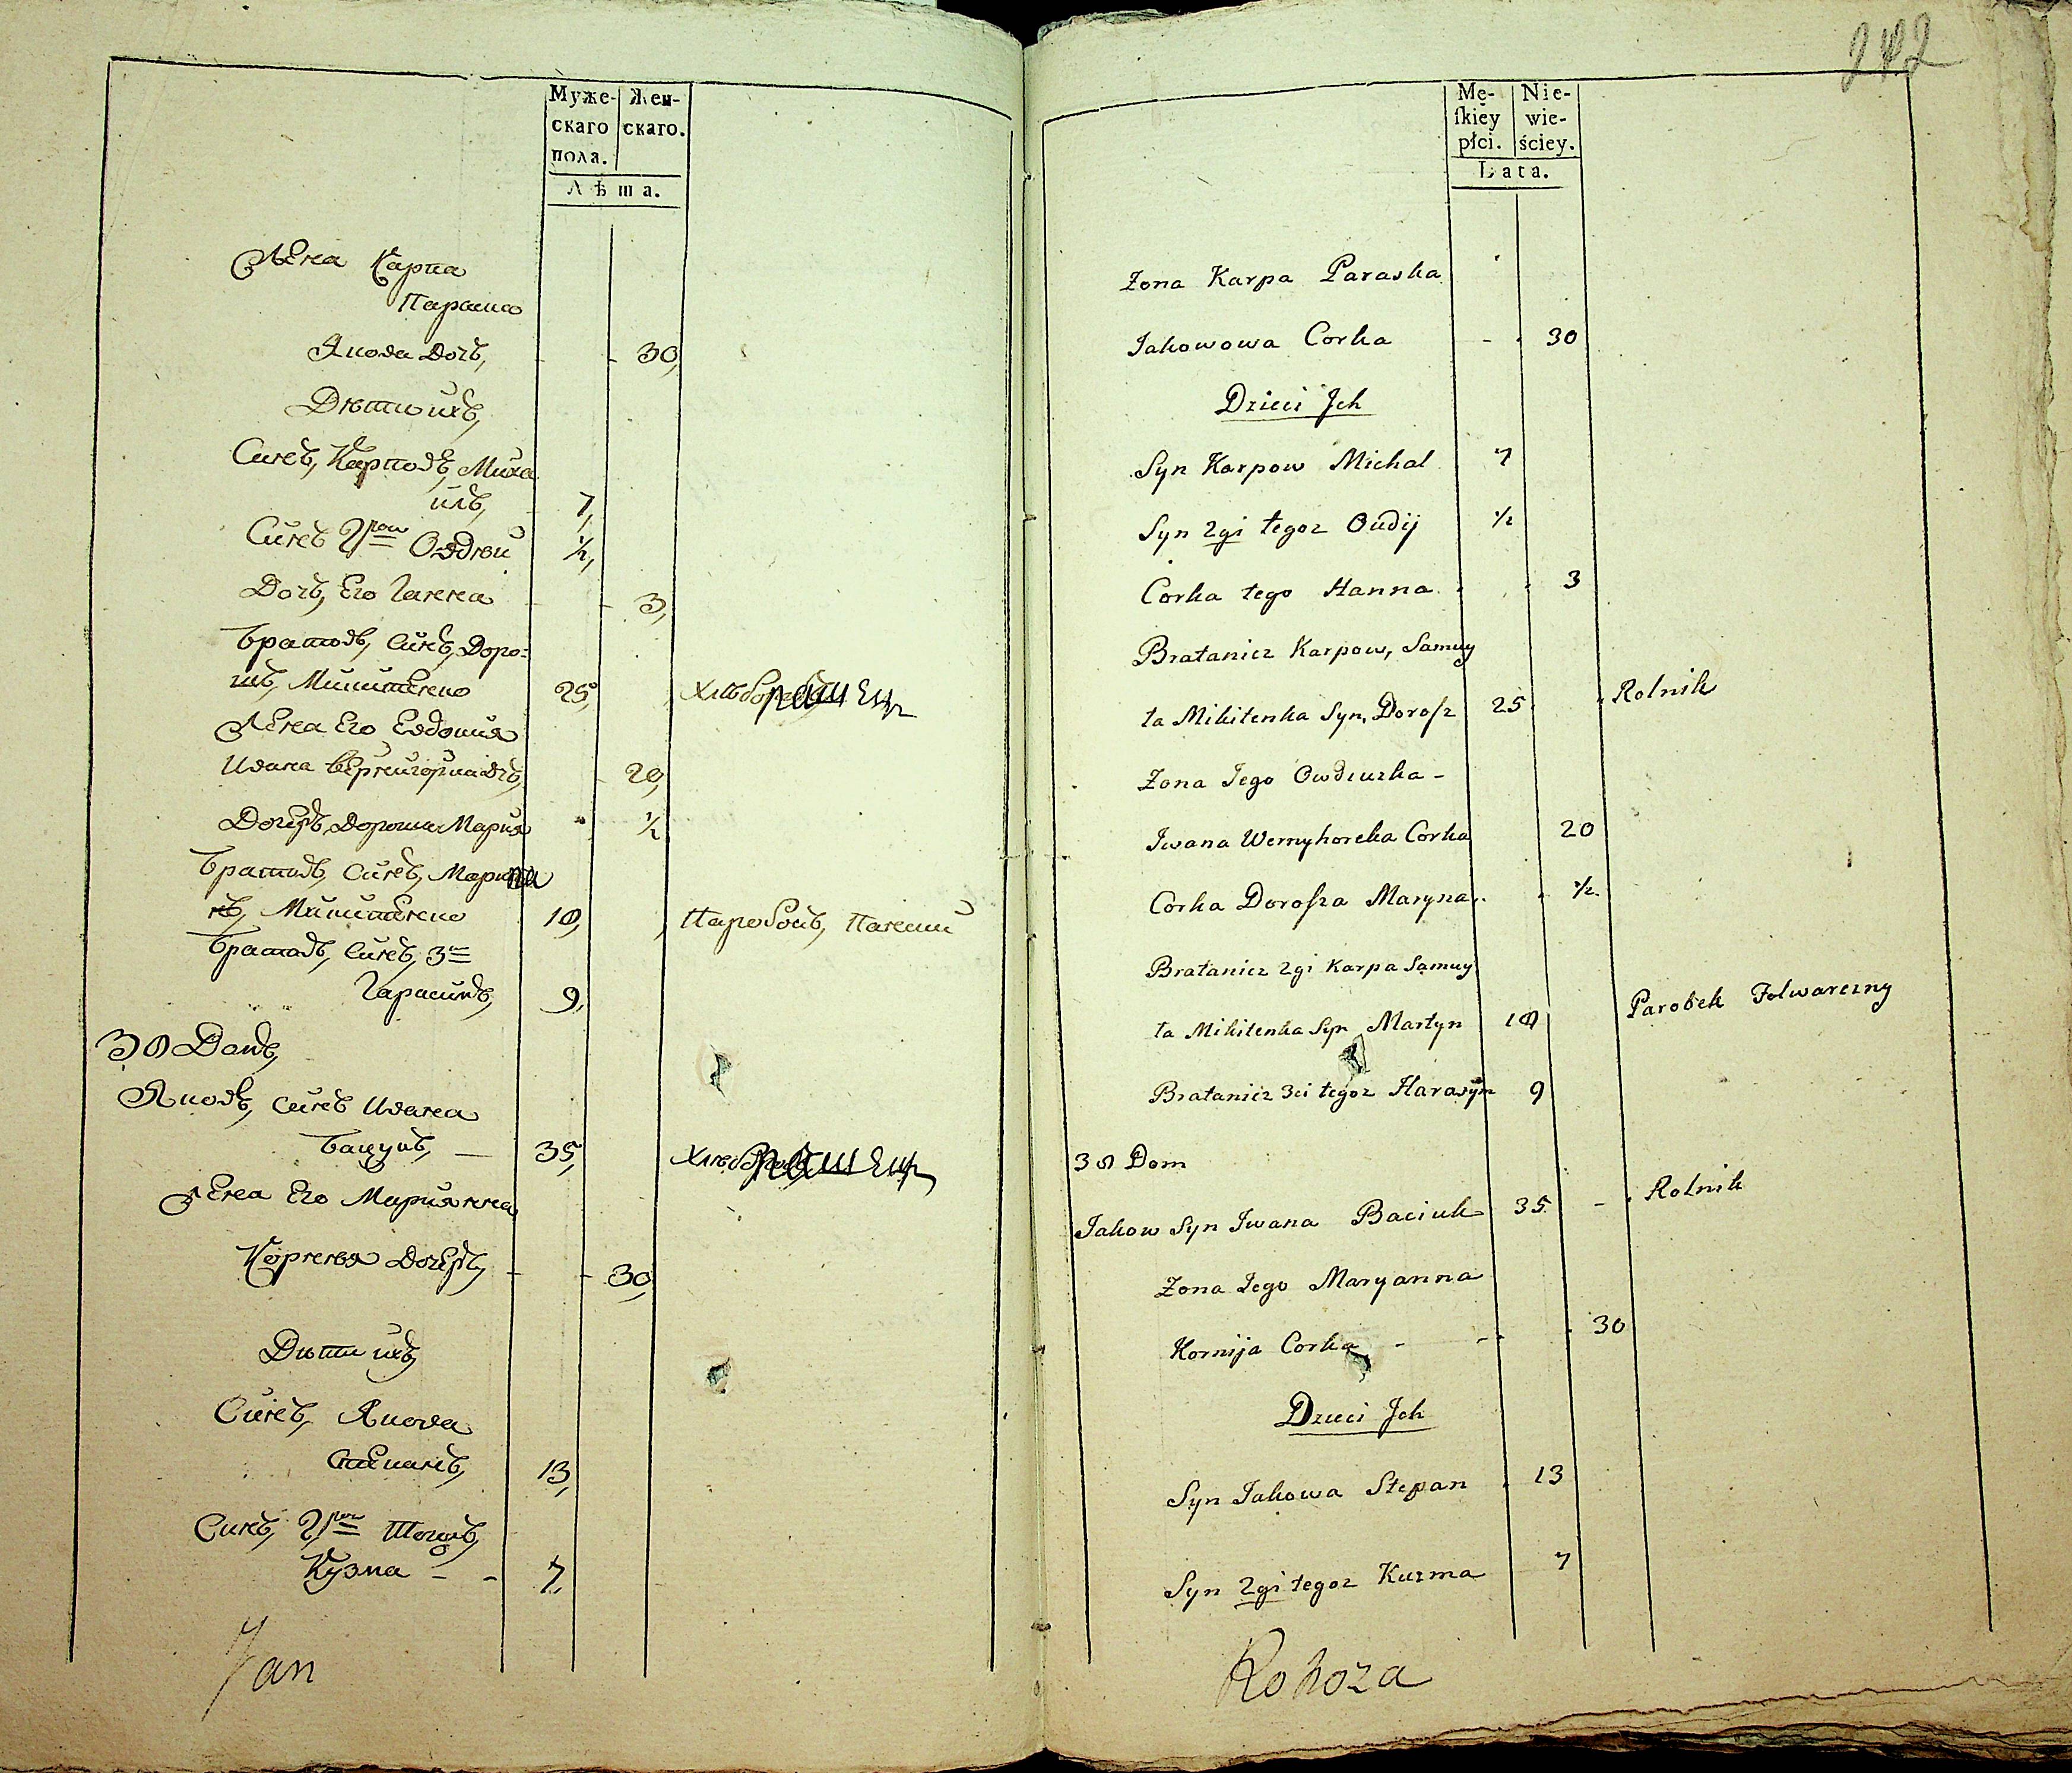 Муже-
скаго
пола.
Жен-
скаго.
Лѣта.
Жена Карпа
Параска
Якова Дочь, 30,
Дѣти ихъ,
Синъ, Карповъ, Миха
илъ, 7,
Синъ 2рои Овдѣй ½,
Дочь, Его Ганна 3,
Братовъ, Синъ, Доро=
шъ, Микитенко 25, пашец
Жена Его Евдокия
Ивана Вернигори дочь, 20,
Дочерь, Дороша Мария ½
Братовъ, Синъ, Марти
нъ, Микитенко 10, Паробокъ, Панский
Братовъ, Синъ, 3й
Гарасимъ, 9,
30 Домъ,
Яковъ, Синъ Ивана
Бацукъ, 35, пашец
Жена Его Марианна
Корнѣя Дочерь, 30,
Дѣти ихъ,
Синъ, Якова
Степанъ, 13,
Синъ, 2рои Тогожъ,
Кузма - - 7,
Jan
242
Mę-
ſkiey
płci.
Nie-
wie-
ściey.
Lata.
Zona Karpa Paraska
Jakowowa Corka - 30
Dzieci Jch
Syn Karpow Michal 7
Syn 2gi tegoz Oudij ½
Corka tego Hanna 3
Bratanicz Karpow, Samuy
ta Mikitenka Syn, Doroſz 25 Rolnik
Zona Jego Owdiuzka -
Jwana Wernyhorcka Corka 20
Corka Doroſza Maryna ½
Bratanicz 2gi Karpa Samuy
ta Mikitenka Syn Martyn 10 Parobek Folwarczny
Bratanicz 3ci tegoz Harasym 9
30 Dom
Jakow Syn Jwana Baciuk 35 - Rolnik
Zona Jego Maryanna
Kornija Corka - 30
Dzieci Jch
Syn Jakowa Stepan 13
Syn 2gi tegoz Kuzma 7
Rohoza